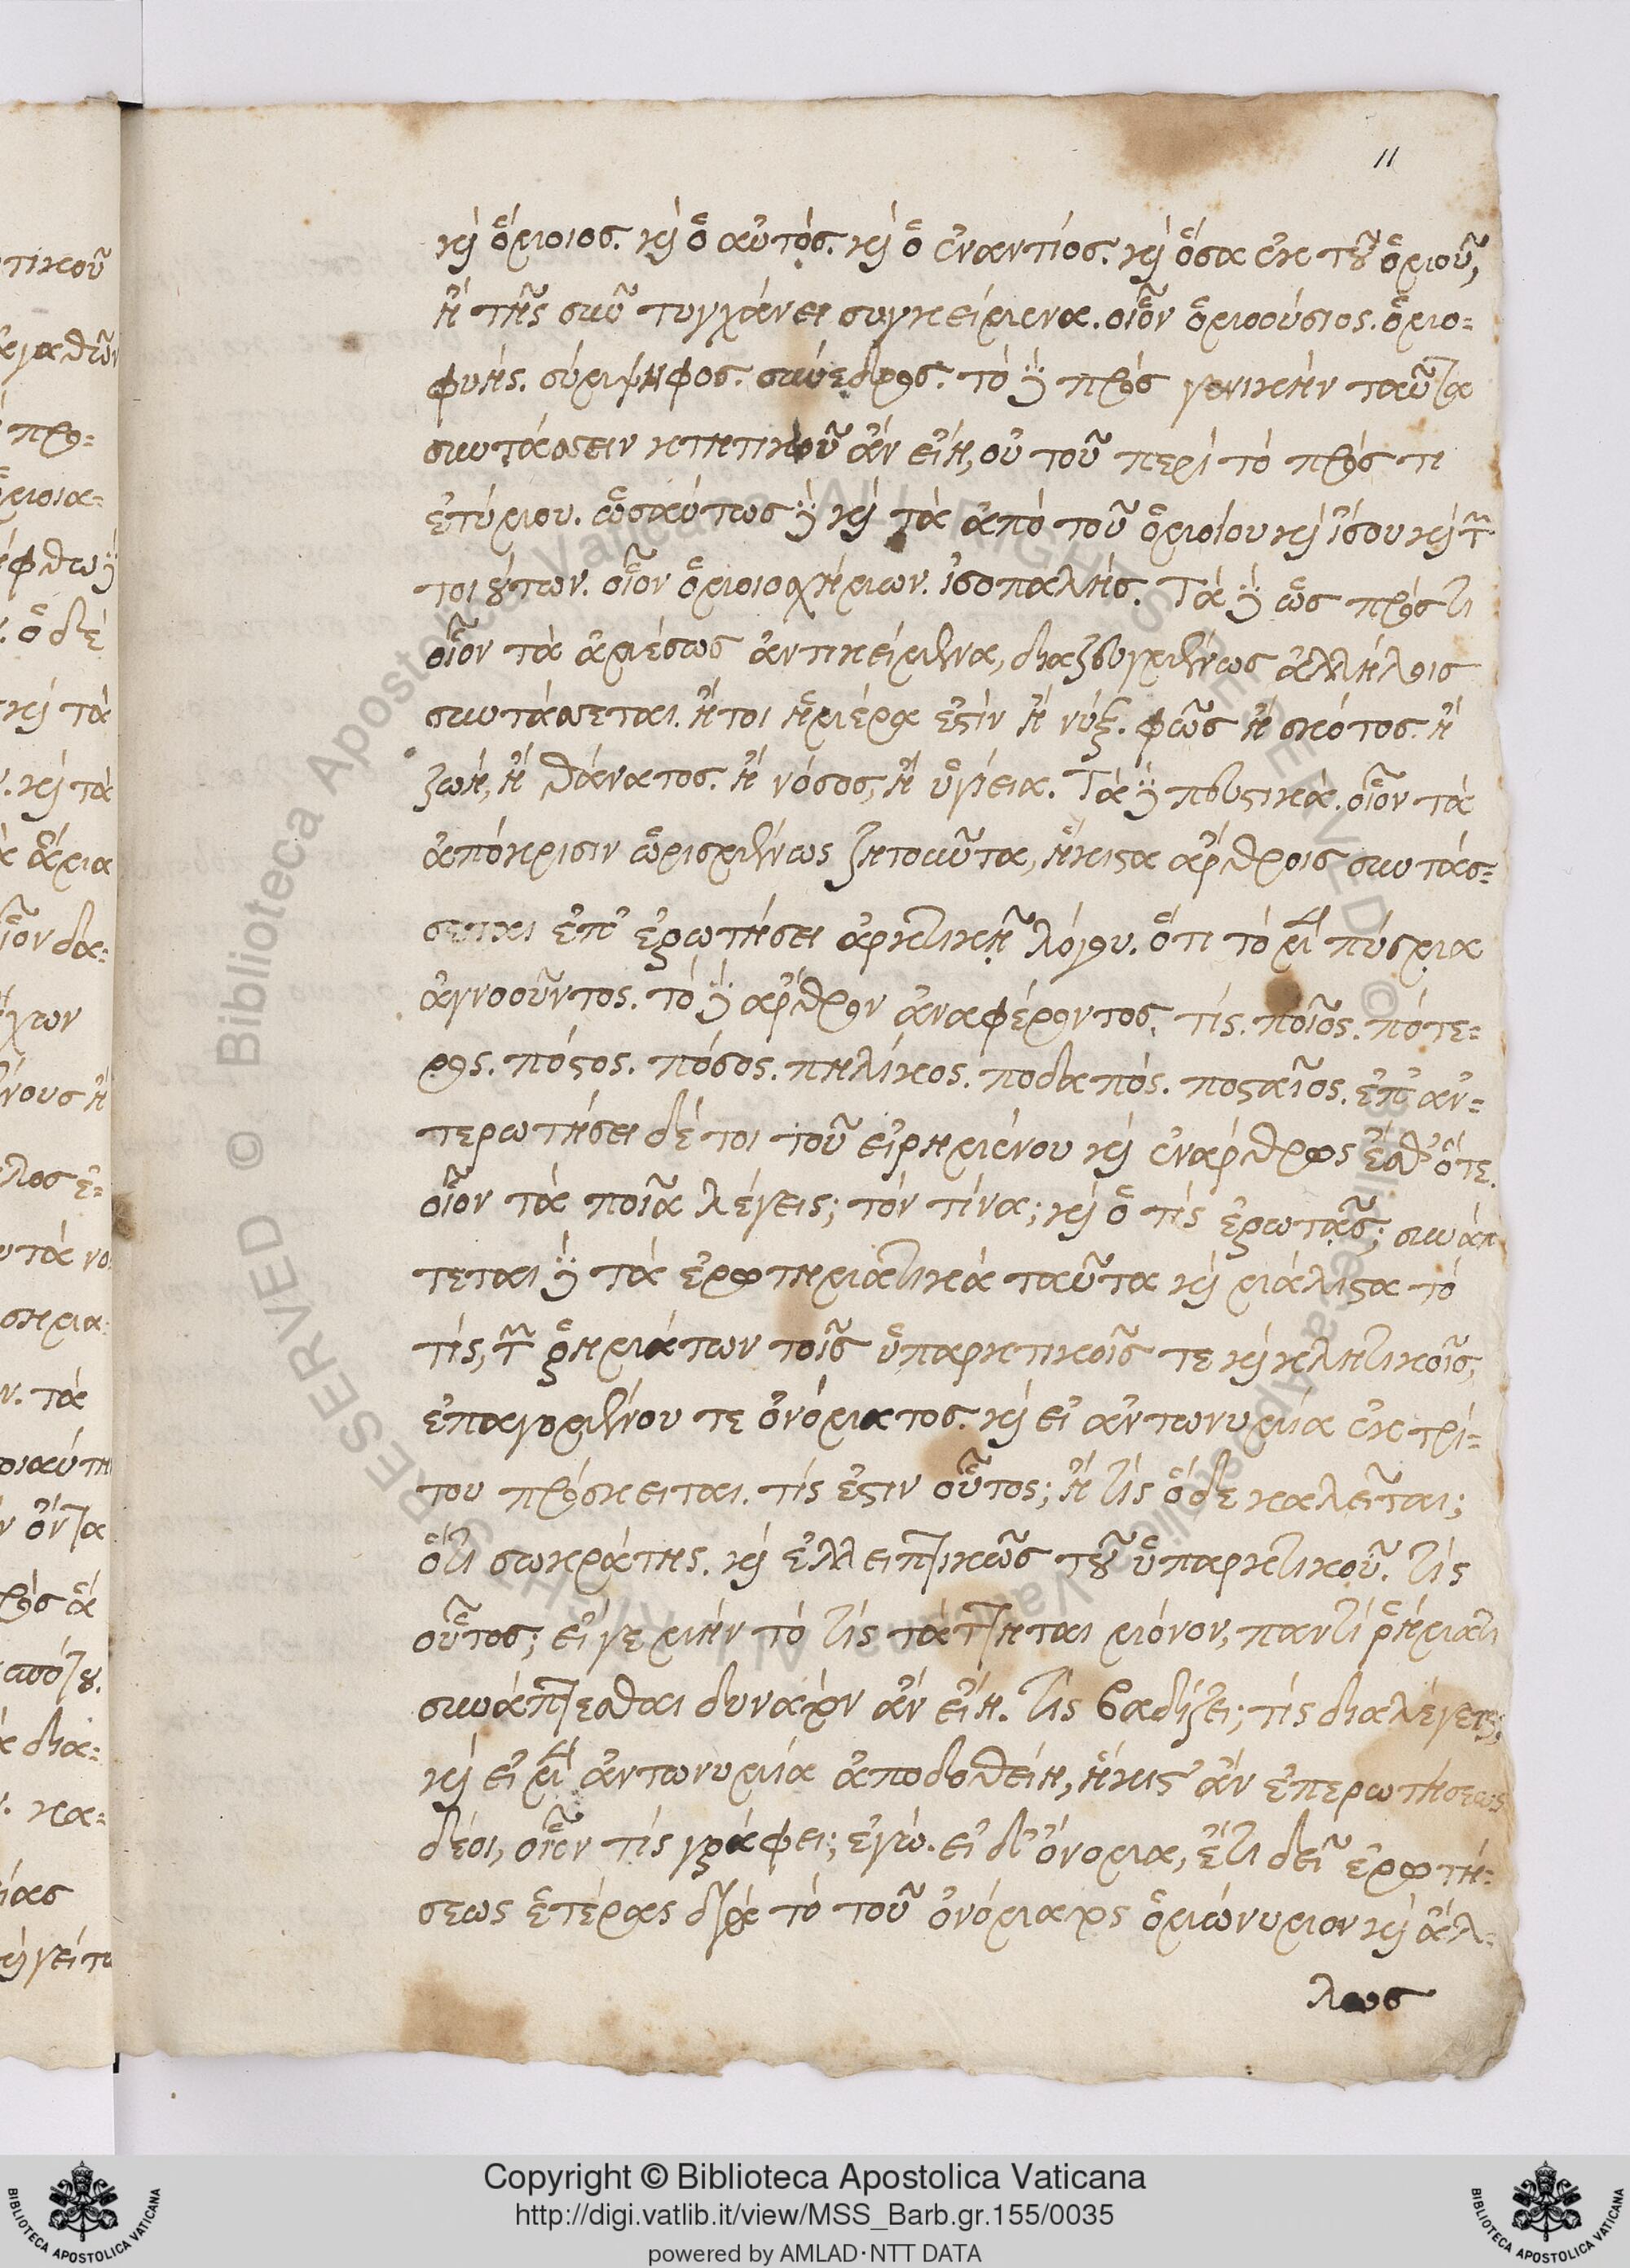 11
καὶ ὅμοιος. καὶ ὁ αὐτός. καὶ ὁ ἐναντίος. καὶ ὅσα ἐκ τοῦ ὁμοῦ,
ἢ τῆς σὺν τυγχάνει συγκείμενα. οἷον ὁμοούσιος. ὁμο-
φυής. σύμψηφος. σύνεδρος. τὸ δὲ πρὸς γενικὴν ταῦτα
συντάσσειν κτητικοῦ ἂν εἴη, οὐ τοῦ περὶ τὸ πρός τι
ἐτύμου. ὡσαύτως δὲ καὶ τὰ ἀπὸ τοῦ ὁμοίου καὶ ἴσου καὶ τῶν
τοιούτων. οἷον ὁμοιοσχήμων. ἰσοπαλής. Τὰ δὲ ὡς πρός τι
οἷον τὰ ἀμέσως ἀντικείμενα, διαζευγμένως ἀλλήλοις
συντάσσεται. ἤτοι ἡμέρα ἐστὶν ἢ νύξ. φῶς ἢ σκότος. ἢ
ζωή, ἢ θάνατος. ἢ νόσος, ἢ ὑγίεια. Τὰ δὲ πευστικά. οἷον τὰ
ἀπόκρισιν ὡρισμένως ζητοῦντα, ἥκιστα ἄρθροις συντάσ-
σεται ἐπ' ἐρωτήσει ἀρκτικῇ λόγου. ὅτι τὸ μὲν πύσμα
ἀγνοοῦντος. τὸ δὲ ἄρθρον ἀναφέροντος. τίς. ποῖος. πότε-
ρος. πόστος. πόσος. πηλίκος. ποδαπός. ποσταῖος. ἐπ' ἀν-
τερωτήσει δέ τοι τοῦ εἰρημένου καὶ ἐναρθρως ἔσθ' ὅτε.
οἷον τὰ ποῖα λέγεις; τὸν τίνα; καὶ ὁ τίς ἐρωτᾷς; συνάπ
τεται δὲ τὰ ἐρωτηματικὰ ταῦτα καὶ μάλιστα τὸ
τίς, τῶν ῥημάτων τοῖς ὑπαρκτικοῖς τε καὶ κλητικοῖς,
ἐπαγομένου τε ὀνόματος. καὶ εἰ ἀντωνυμία ἐκ τρί-
του πρόσκειται. τίς ἐστιν οὗτος; ἢ τίς ὅδε καλεῖται;
ὅτι σωκράτης. καὶ ἐλλειπτικῶς τοῦ ὑπαρκτικοῦ. τίς
οὗτος; εἴγε μὴν τὸ τίς τάττηται μόνον, παντὶ ῥήματι
συνάπτεσθαι δυνατὸν ἂν εἴη. τίς βαδίζει; τίς διαλέγεται;
καὶ εἰ μὲν ἀντωνυμία ἀποδοθείη, ἥκιστ' ἂν ἐπερωτήσεως
δέοι, οἷον τίς γράφει; ἐγώ. εἰ δ' ὄνομα, ἔτι δεῖ ἐρωτή-
σεως ἑτέρας διὰ τὸ τοῦ ὀνόματος ὁμώνυμον καὶ ἄλ-
λως